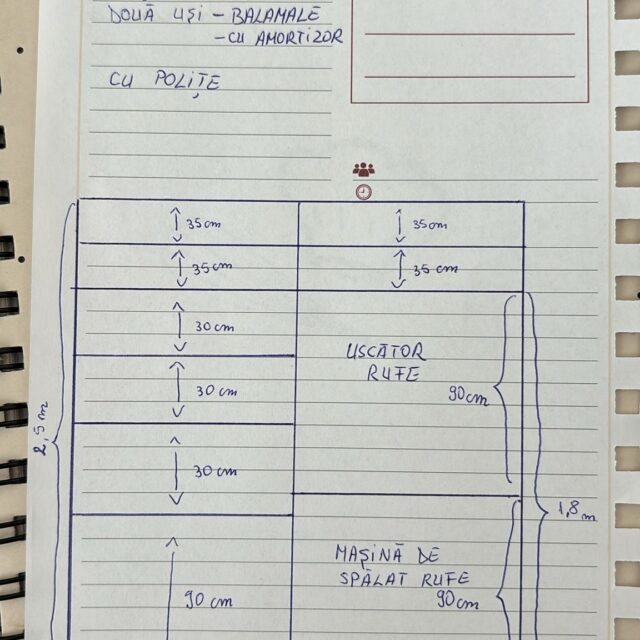 DOUĂ UȘI - BALAMALE
- CU AMORTIZOR
CU POLIȚE
35 cm
35 cm
35 cm
35 cm
30 cm
USCĂTOR
RUFE
30 cm
90 cm
2,5 m
30 cm
1,8 m
MAȘINĂ DE
SPĂLAT RUFE
90 cm
90 cm